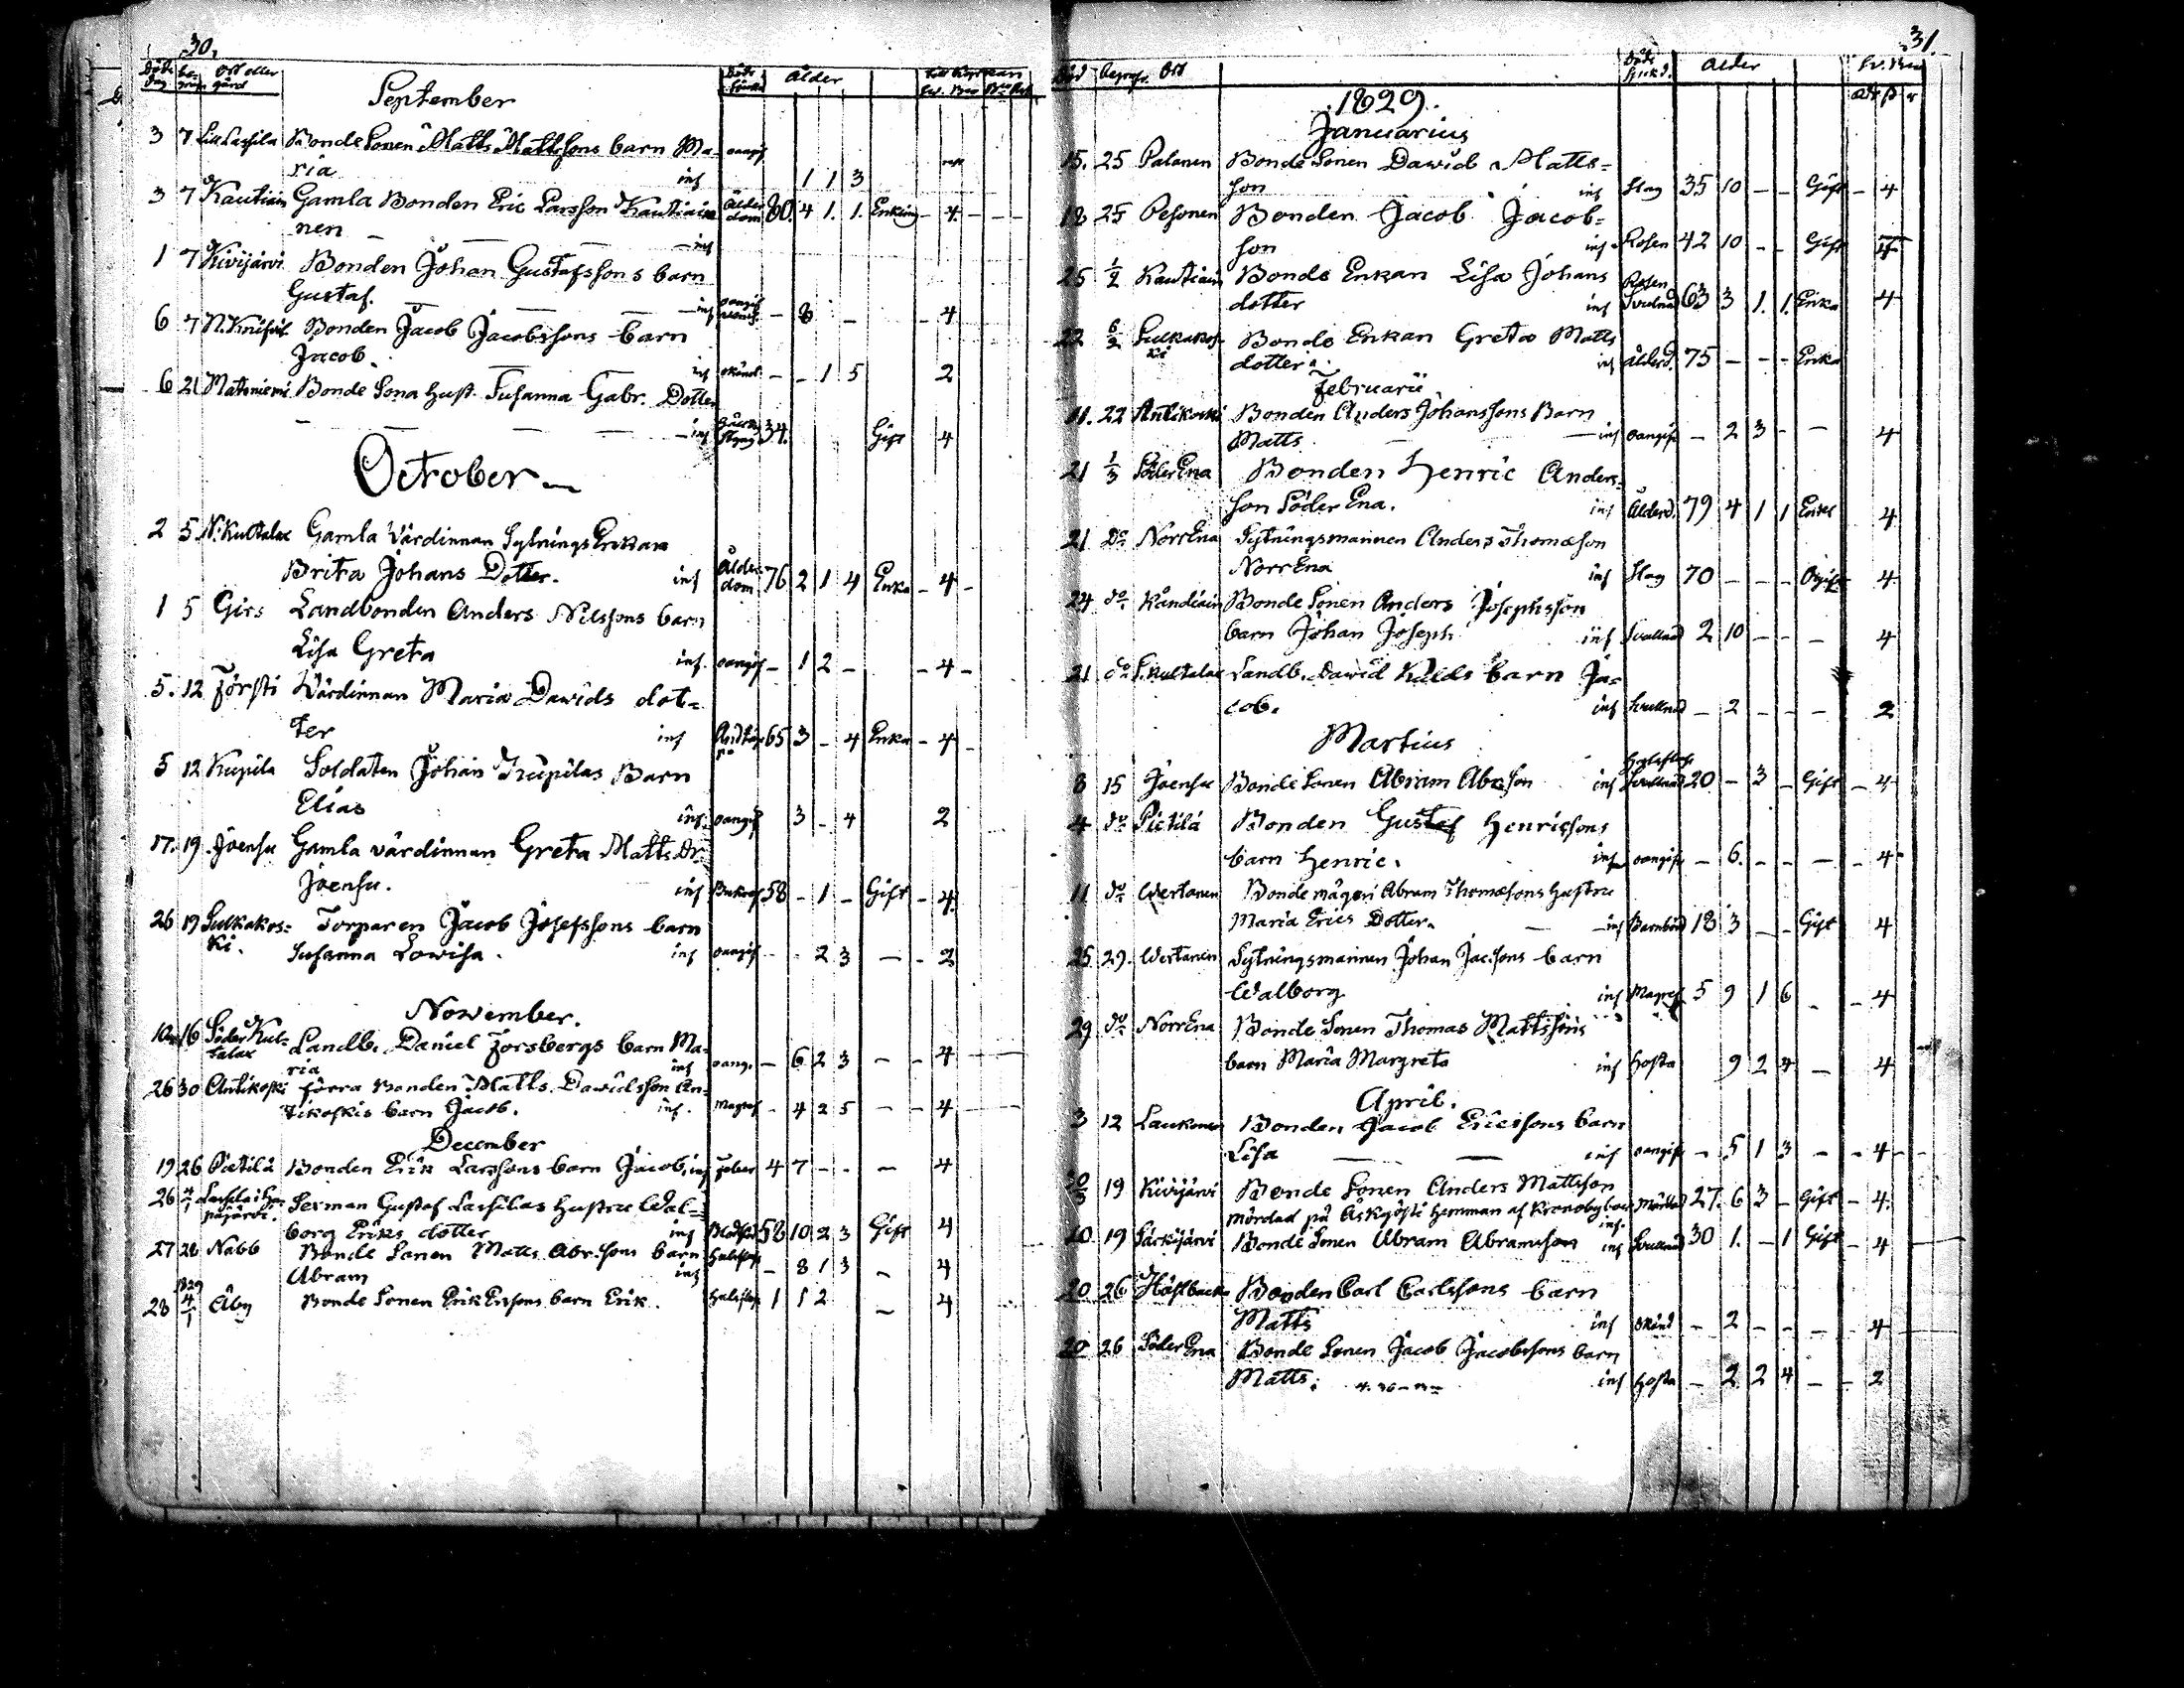 30.
Död dag ort eller gård Ålder
September
3 7 Bonde Sonen Matts Mattssons barn Ma-
ria inf 1 1 3
3 7 Kautiain Gamla Bonden Eric Larsson Kautiai-
nen inf Ålder dom 80. 4 1. 1. Enkling - 4 - -
1 7 Kivijärvi Bonden Johan Gustafssons barn
Gustaf. inf - 8 - - 4
6 7 Bonden Jacob Jacobssons barn
Jacob. inf okänd - - 1 5 2
6 21 Mataniemi Bonde Sona hust. Susanna Gabr. Dotter
inf 34. Gift 4
October
2 5 N. Kultalax Gamla Värdinnan SytningsEnkan
Brita Johans Dotter. inf Ålder dom 76 2 1 4 Enka - 4 -
1 5 Girs Landbonden Anders Nilssons barn
Lisa Greta inf. oangif - 1 2 - - 4 -
5. 12 Försti Värdinnan Maria Dawids dot-
ter inf 65 3 - 4 Enka - 4 -
5 12 Krupila Soldaten Johan Krupilas Barn
Elias inf. oangif 3 - 4 2
17. 19 Joensu Gamla värdinnan Greta Matts dr.
Joensu. inf 58 - 1 - Gift - 4.
26 19 Sulkakos- Torparen Jacob Josefssons barn
ki. Susanna Lowisa. inf oangif - - 2 3 - - 2
November.
16 Söder Kul- Landb. Daniel Forsbergs barn Ma-
talax ria inf oang. - 6 2 3 - - 4
26 30 Antikoski förra Bonden Matts Dawidsson An-
tikoskis barn Jacob. inf. Magref - 4 2 5 - - 4
December
19 26 Pietilä Bonden Erik Larssons barn Jacob, inf feber 4 7 - - - 4
26 4/1 Sexman Gustaf Lassilas hustru Wal-
borg Eriks dotter inf 58 10 2 3 Gift 4
27 26 Nabb Bonde Sonen Matts Abr.sons barn
Abram inf - 8 1 3 - 4
28 1829 4/1 Åby Bonde Sonen Erik Ersons barn Erik. 1 1 2 - 4
31.
Död Begrafn. Ort Ålder
1829.
Januarius
15. 25 Palanen Bonde Sonen Dawid Matts-
son inf Slag 35 10 - - Gift - 4
18 25 Pesonen Bonden Jacob Jacob-
son inf Rosen 42 10 - - Gift 4
25 1/2 Kautiain Bonde Enkan Lisa Johans
dotter inf Rosen Svullnad 63 3 1. 1. Enka 4
22 6/2 Sulkakos- Bonde Enkan Greta Matts
ki dotter. inf ålderd. 75 - - - Enka
Februarii
11. 22 Antikoski Bonden Anders Johanssons Barn
Matts inf oangif - 2 3 - - 4
21 1/3 Söder Ena Bonden Henric Anders-
son Söder Ena. inf Ålderd. 79 4 1 1 Enkl 4
21 do NorrEna Sytningsmannen Anders Thomæson
NorrEna inf Slag 70 - - - Ogift 4
24 do Kandiain Bonde Sonen Anders Josephsson
barn Johan Joseph inf Svullnad 2 10 - - - 4
21 do S. Kultalax Landb. Dawid barn Ja-
cob. inf Svullnad - 2 - - - 2
Martius
8 15 Joensu Bonde Sonen Abram Abr.son inf Svullnad 20 - 3 - Gift - 4
4 do Pietilä Bonden Gustaf Henricsons
barn Henric. inf oangif - 6. - - - - 4
11 do Wertanen Bonde mågen Abram Thomæsons hustru
Maria Erics Dotter. inf Barnbörd 18 3 - - Gift 4
25 29. Wertanen Sytningsmannen Johan Jac.sons barn
Walborg inf Magref 5 9 1 6 - - 4
29 do NorrEna Bonde Sonen Thomas Mattssons
barn Maria Margreta inf hosta 9 2 4 - 4
April.
3 12 Laukonen Bonden Jacob Ericssons barn
Lisa inf oangif - 5 1 3 - - 4 -
30/3 19 Kivijärvi Bonde Sonen Anders Mattsson
mördad på Åskyösti hemman af Kronoby inf. Mördad 27. 6 3 - Gift - 4.
10 19 Särkijärvi Bonde Sonen Abram Abramsson inf Svullnad 30 1. - 1 Gift - 4
20 26 Höstbacka Bonden Carl Carlssons barn
Matts inf okänd - 2 - - - - 4
20 26 Söder Ena Bonde Sonen Jacob Jacobssons barn
Matts. inf hosta - 2 2 4 - - 2